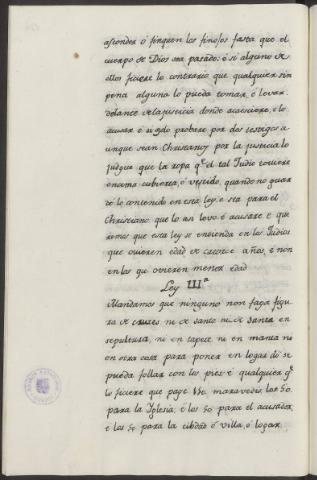 asconder ó finquen los finojos fasta que el
cuerpo de Dios sea pasado: é si alguno de
ellos ficiere lo contrario que qualquier sin
pena alguna lo pueda tomar, é levar
delante de la justicia donde acaesciere, é lo
acusar é sigelo probare por dos testigos a
unque sean Christianos por la justicia lo
judgue que la ropa qe. el tal Judio toviere
encima cubierta, ó vestido, quando no guar
dó lo contenido en esta ley, é sea para el
Christiano que lo asi levó é acusare é que
remos que esta ley se entienda en los Judios
que ovieren edad de catorce años, é non
en los que ovieren menor edad
Ley IIIa.
Mandamos que ninguno non faga figu
ra de cruzes ni de santo ni de santa en
sepultura, ni en tapete ni en manta ni
en otra cosa para poner en logar dó se
pueda follar con los pies é qualquier qe.
lo ficiere que page 150 maravedis, los 50
para la Iglesia, é los 50 para el acusador
é los 50 para la cibdad ó villa, ó logar